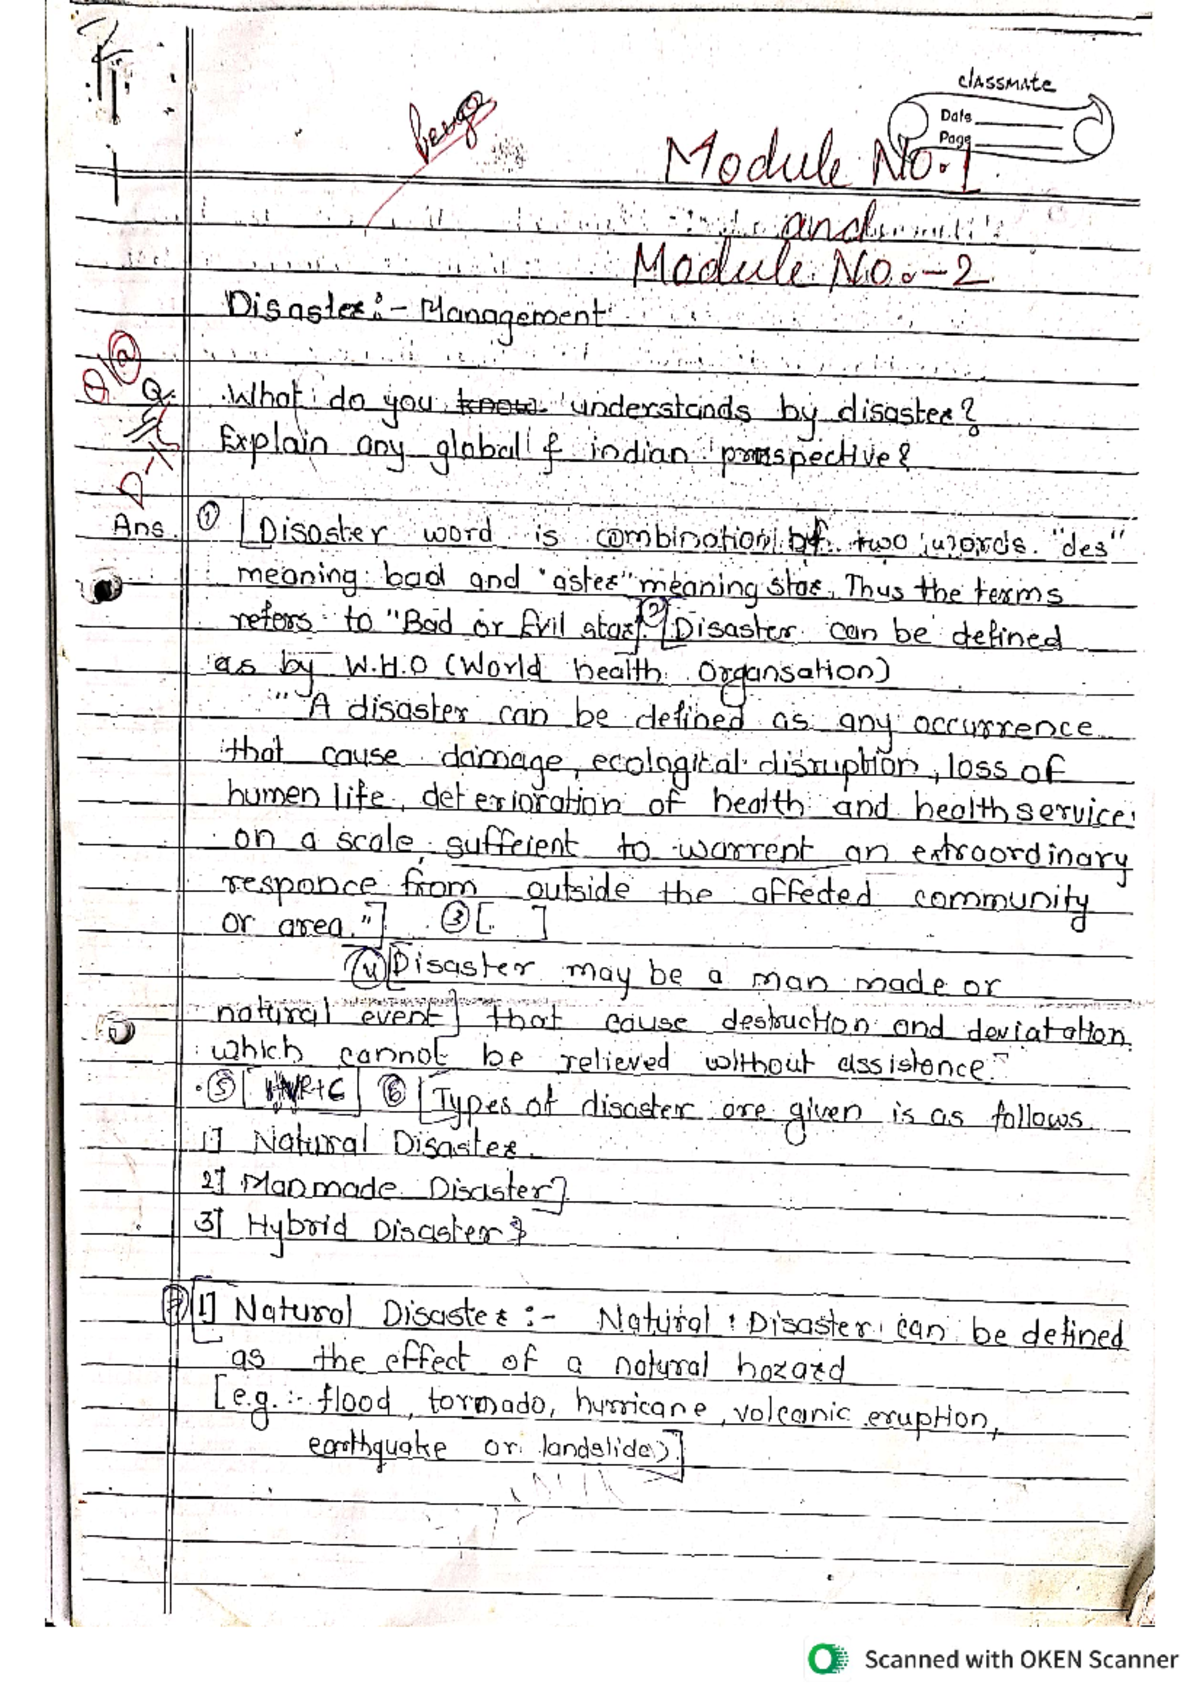 classmate
Date
Page
Module No.1
and
Module No.-2
Disaster:- Management
Q.
What do you know understands by disaster?
Explain any global & indian prospective?
Ans
① [Disaster word is combination of two words "des"
meaning bad and "aster" meaning star. Thus the terms
refers to "Bad or Evil star]. ② [Disaster can be defined
as by W.H.O (World health Organsation)
"A disaster can be defined as any occurrence
that cause damage, ecological disruption, loss of
humen life, deterioration of health and health service
on a scale sufficient to warrent an extraordinary
responce from outside the affected community
or area."] ③ [ ]
④ [Disaster may be a man made or
natural event] that cause destruction and deviatation
which cannot be relieved without assistence."
⑤ [ ] ⑥ [Types of disaster are given is as follows
1] Natural Disaster.
2] Manmade Disaster]
3] Hybrid Disaster
⑦ [1] Natural Disaster :- Natural Disaster can be defined
as the effect of a natural hazard
[e.g. :- flood, tormado, hurricane, volcanic eruption,
earthquake or landslide)]
Scanned with OKEN Scanner